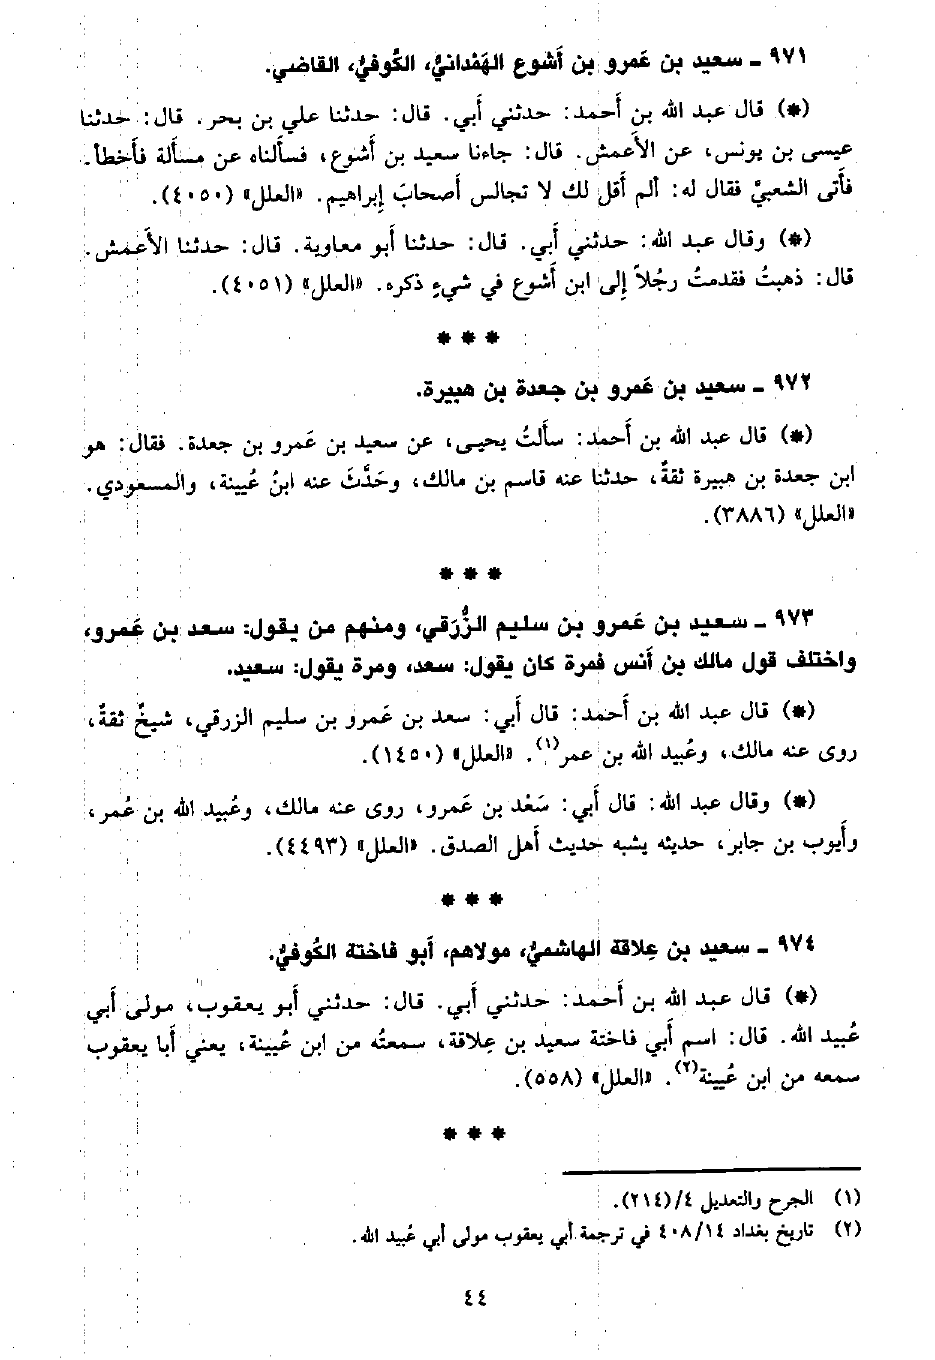 ٩٧١ ـ سعيد بن عَمرو بن أَشوع الهَمْدانيُّ، الكُوفيُّ، القاضي.
(*) قال عبد الله بن أَحمد: حدثني أَبي. قال: حدثنا علي بن بحر. قال: حدثنا
عيسى بن يونس، عن الأَعمش. قال: جاءنا سعيد بن أَشوع، فسألناه عن مسألة فأَخطأ.
فأتى الشعبيَّ فقال له: ألم أَقل لك لا تجالس أَصحابَ إِبراهيم. «العلل» (٤٠٥٠).
(*) وقال عبد الله: حدثني أَبي. قال: حدثنا أَبو معاوية. قال: حدثنا الأَعمش.
قال: ذهبتُ فقدمتُ رجُلاً إِلى ابن أَشوع في شيءٍ ذكره. «العلل» (٤٠٥١).
* * *
٩٧٢ ـ سعيد بن عَمرو بن جعدة بن هبيرة.
(*) قال عبد الله بن أَحمد: سألتُ يحيى، عن سعيد بن عَمرو بن جعدة. فقال: هو
ابن جعدة بن هبيرة ثقةٌ، حدثنا عنه قاسم بن مالك، وحَدَّثَ عنه ابنُ عُيينة، والمسعودي.
«العلل» (٣٨٨٦).
* * *
٩٧٣ ـ سعيد بن عَمرو بن سليم الزُّرَقي، ومنهم من يقول: سعد بن عَمرو،
واختلف قول مالك بن أَنس فمرة كان يقول: سعد، ومرة يقول: سعيد.
(*) قال عبد الله بن أَحمد: قال أَبي: سعد بن عَمرو بن سليم الزرقي، شيخٌ ثقةٌ،
روى عنه مالك، وعُبيد الله بن عمر(١). «العلل» (١٤٥٠).
(*) وقال عبد الله: قال أَبي: سَعْد بن عَمرو، روى عنه مالك، وعُبيد الله بن عُمر،
وأَيوب بن جابر، حديثه يشبه حديث أَهل الصدق. «العلل» (٤٤٩٣).
* * *
٩٧٤ ـ سعيد بن عِلاقة الهاشميُّ، مولاهم، أَبو فاختة الكُوفيُّ.
(*) قال عبد الله بن أَحمد: حدثني أَبي. قال: حدثني أَبو يعقوب، مولى أَبي
عُبيد الله. قال: اسم أَبي فاختة سعيد بن عِلاقة، سمعتُه من ابن عُيينة، يعني أَبا يعقوب
سمعه من ابن عُيينة(٢). «العلل» (٥٥٨).
* * *
(١) الجرح والتعديل ٤/(٢١٤).
(٢) تاريخ بغداد ٤٠٨/١٤ في ترجمة أَبي يعقوب مولى أَبي عُبيد الله.
٤٤